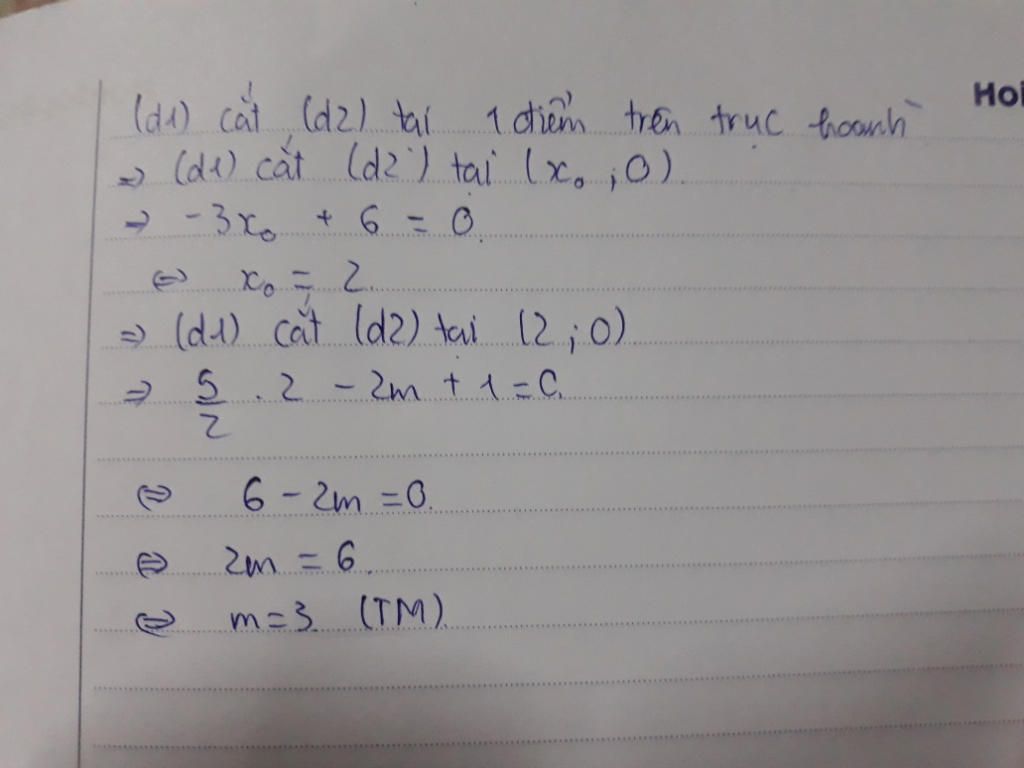 Hoi
(d1) cắt (d2) tại 1 điểm trên trục hoành
=> (d1) cắt (d2) tại (x₀ ; 0).
=> -3x₀ + 6 = 0.
<=> x₀ = 2.
=> (d1) cắt (d2) tại (2 ; 0)
=> 5/2 . 2 - 2m + 1 = 0.
<=> 6 - 2m = 0.
<=> 2m = 6.
<=> m = 3. (TM)